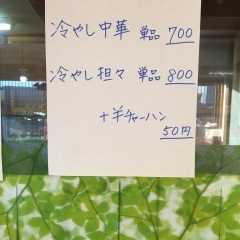 冷やし中華 単品 700
冷やし担々 単品 800
+半チャーハン
50円